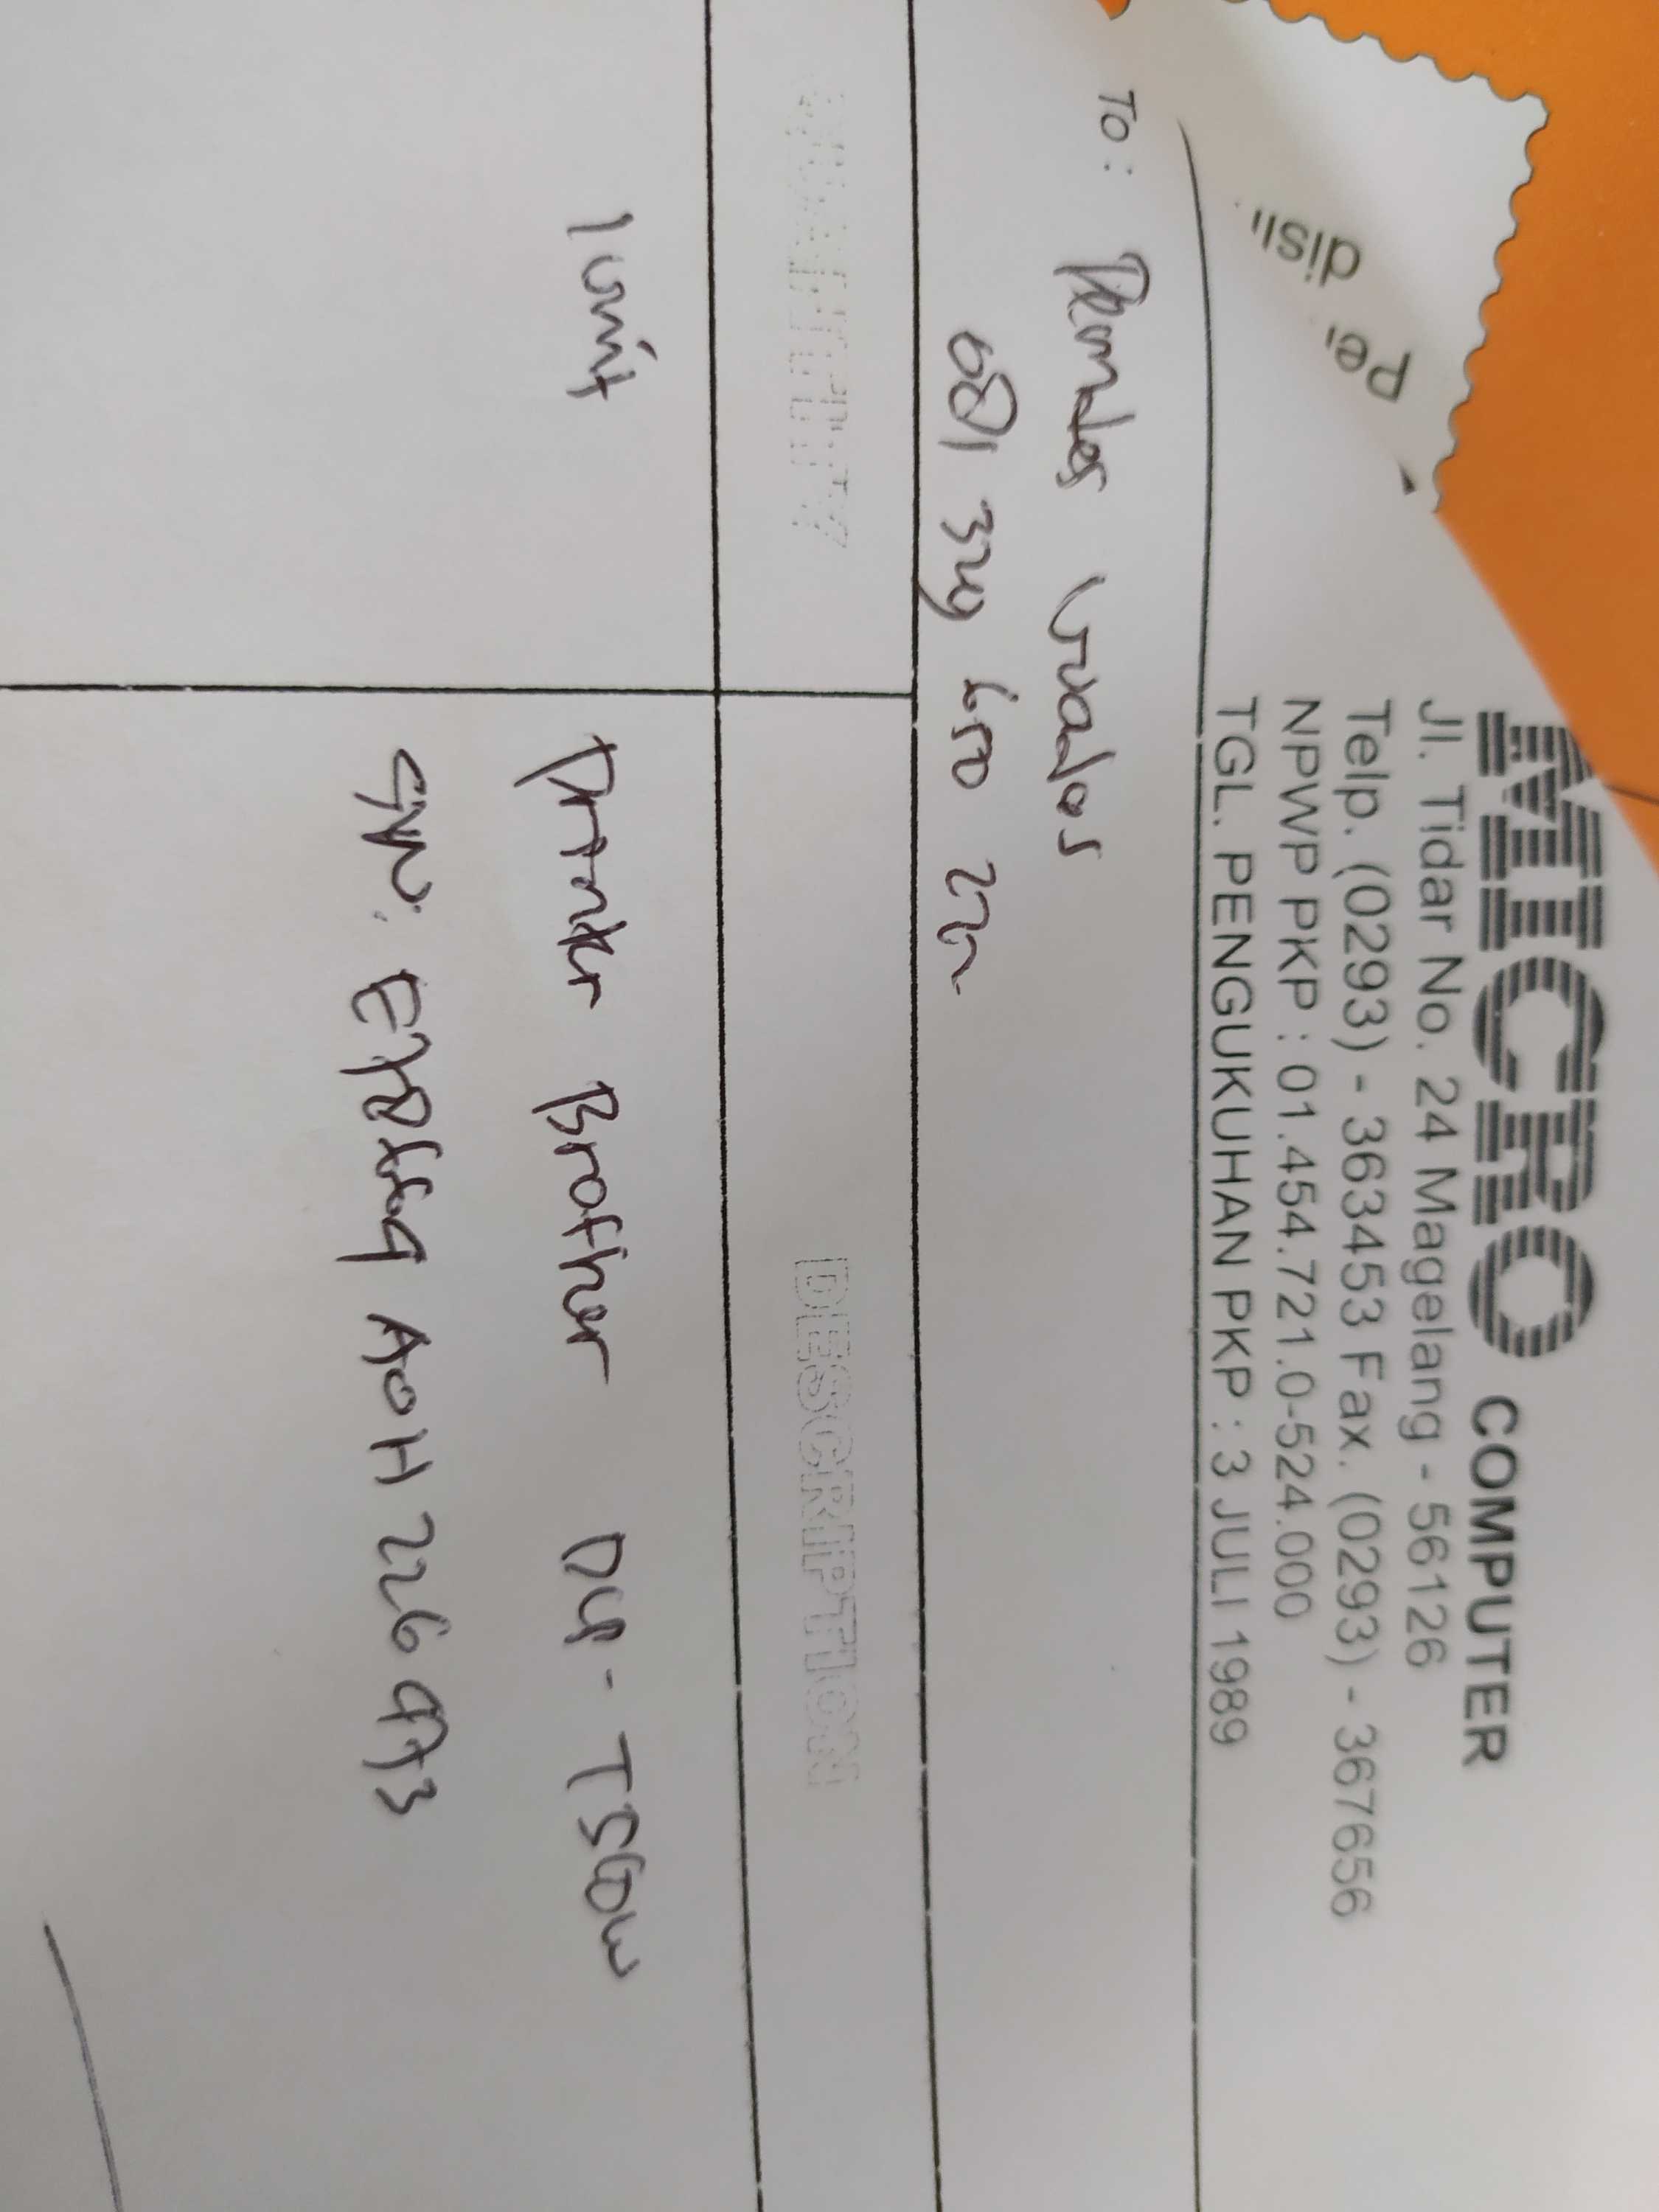 MICRO COMPUTER
Jl. Tidar No. 24 Magelang - 56126
Telp. (0293) - 3634453 Fax. (0293) - 367656
NPWP PKP : 01.454.721.0-524.000
TGL. PENGUKUHAN PKP : 3 JULI 1989
To : Pemdes
QUANTITY DESCRIPTION
1 unit Printer Brother DCP - T500W
SN: AOH 226